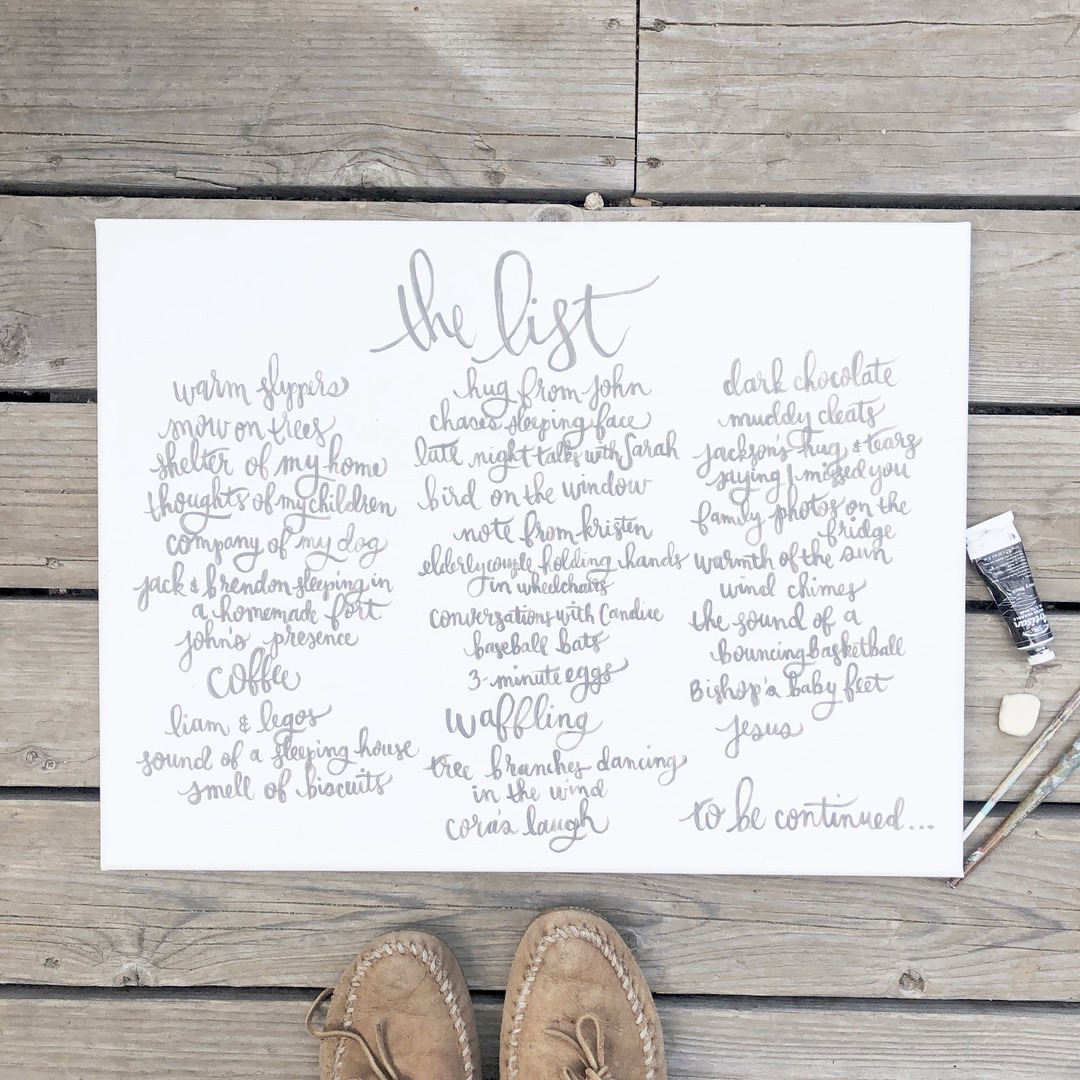 the list
warm slyppers
snow on trees
shelter of my home
thoughts of my children
company of my dog
jack & brendon sleeping in
a homemade fort
john's presence
coffee
liam & legos
sound of a sleeping house
smell of biscuits
hug from john
chases sleeping face
late night talks with Sarah
bird on the window
note from kristen
elderly couple holding hands
in wheelchairs
conversations with Candice
baseball bats
3-minute eggs
waffling
tree branches dancing
in the wind
cora's laugh
dark chocolate
muddy cleats
jackson's hug & tears
saying I missed you
family photos on the
fridge
warmth of the sun
wind chimes
the sound of a
bouncing basketball
Bishop's baby feet
jesus
to be continued...
Artisan